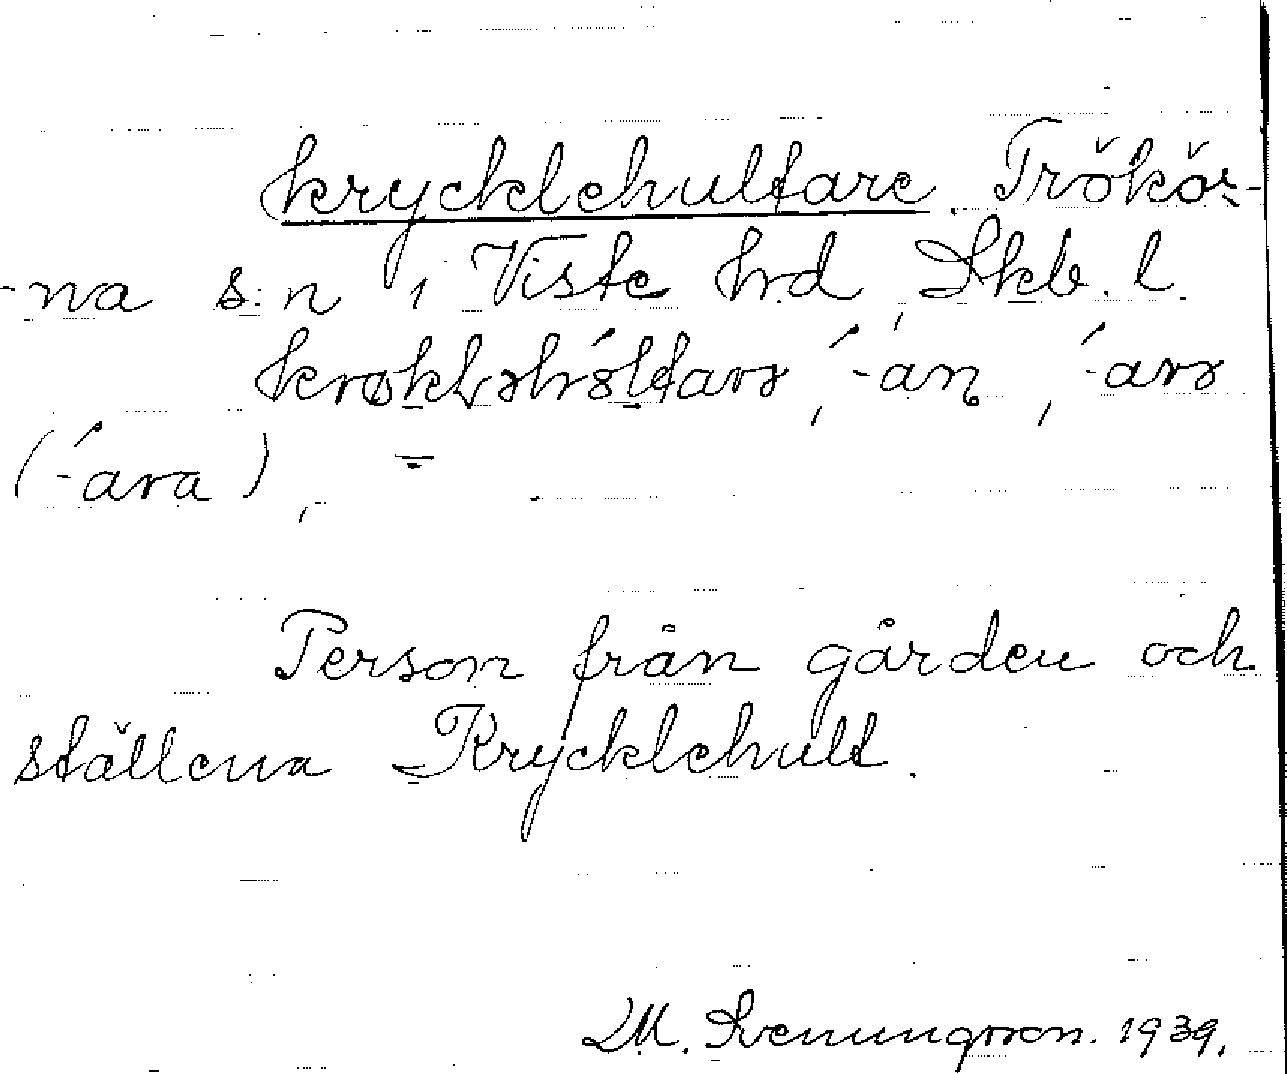 krycklehultare. Trökör-
-na s:n, Viste hrd, Skb. l.
-an, -arə
(-ara),
Person från gården och
ställena Krycklehult.
M. Svenungsson. 1939.